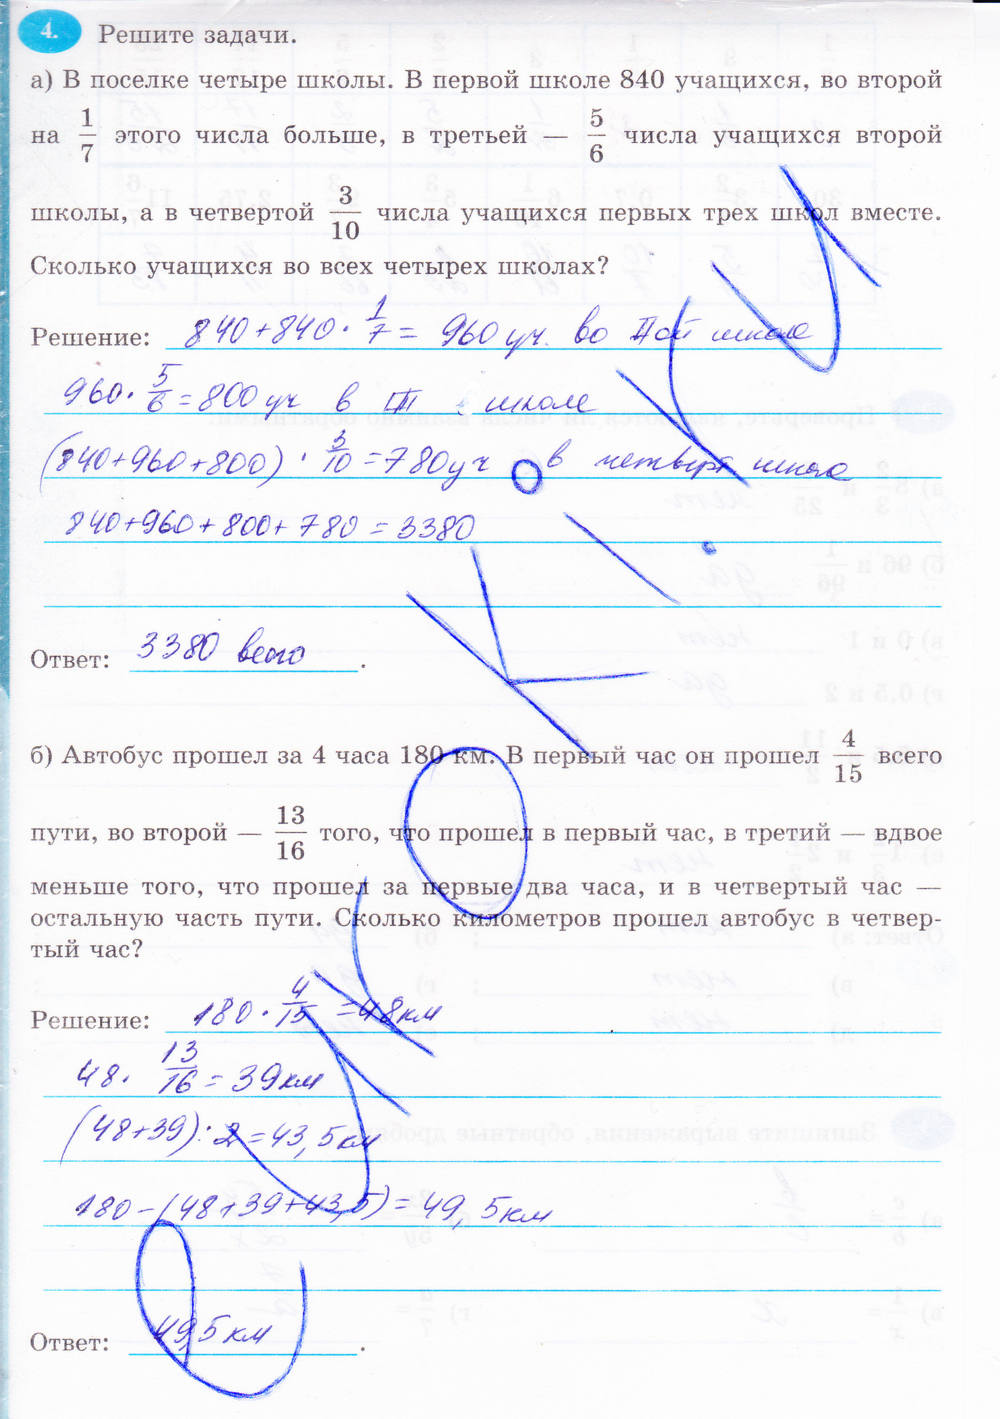 4. Решите задачи.
а) В поселке четыре школы. В первой школе 840 учащихся, во второй
на 1/7 этого числа больше, в третьей — 5/6 числа учащихся второй
школы, а в четвертой 3/10 числа учащихся первых трех школ вместе.
Сколько учащихся во всех четырех школах?
Решение: 840+840·1/7=960 уч. во IIой школе
960·5/6=800 уч в III школе
(840+960+800)·3/10=780 уч в четверт школе
840+960+800+780=3380
Ответ: 3380 всего.
б) Автобус прошел за 4 часа 180 км. В первый час он прошел 4/15 всего
пути, во второй — 13/16 того, что прошел в первый час, в третий — вдвое
меньше того, что прошел за первые два часа, и в четвертый час —
остальную часть пути. Сколько километров прошел автобус в четвер-
тый час?
Решение: 180·4/15=48км
48·13/16=39км
(48+39):2=43,5км
180-(48+39+43,5)=49,5км
Ответ: 49,5км.